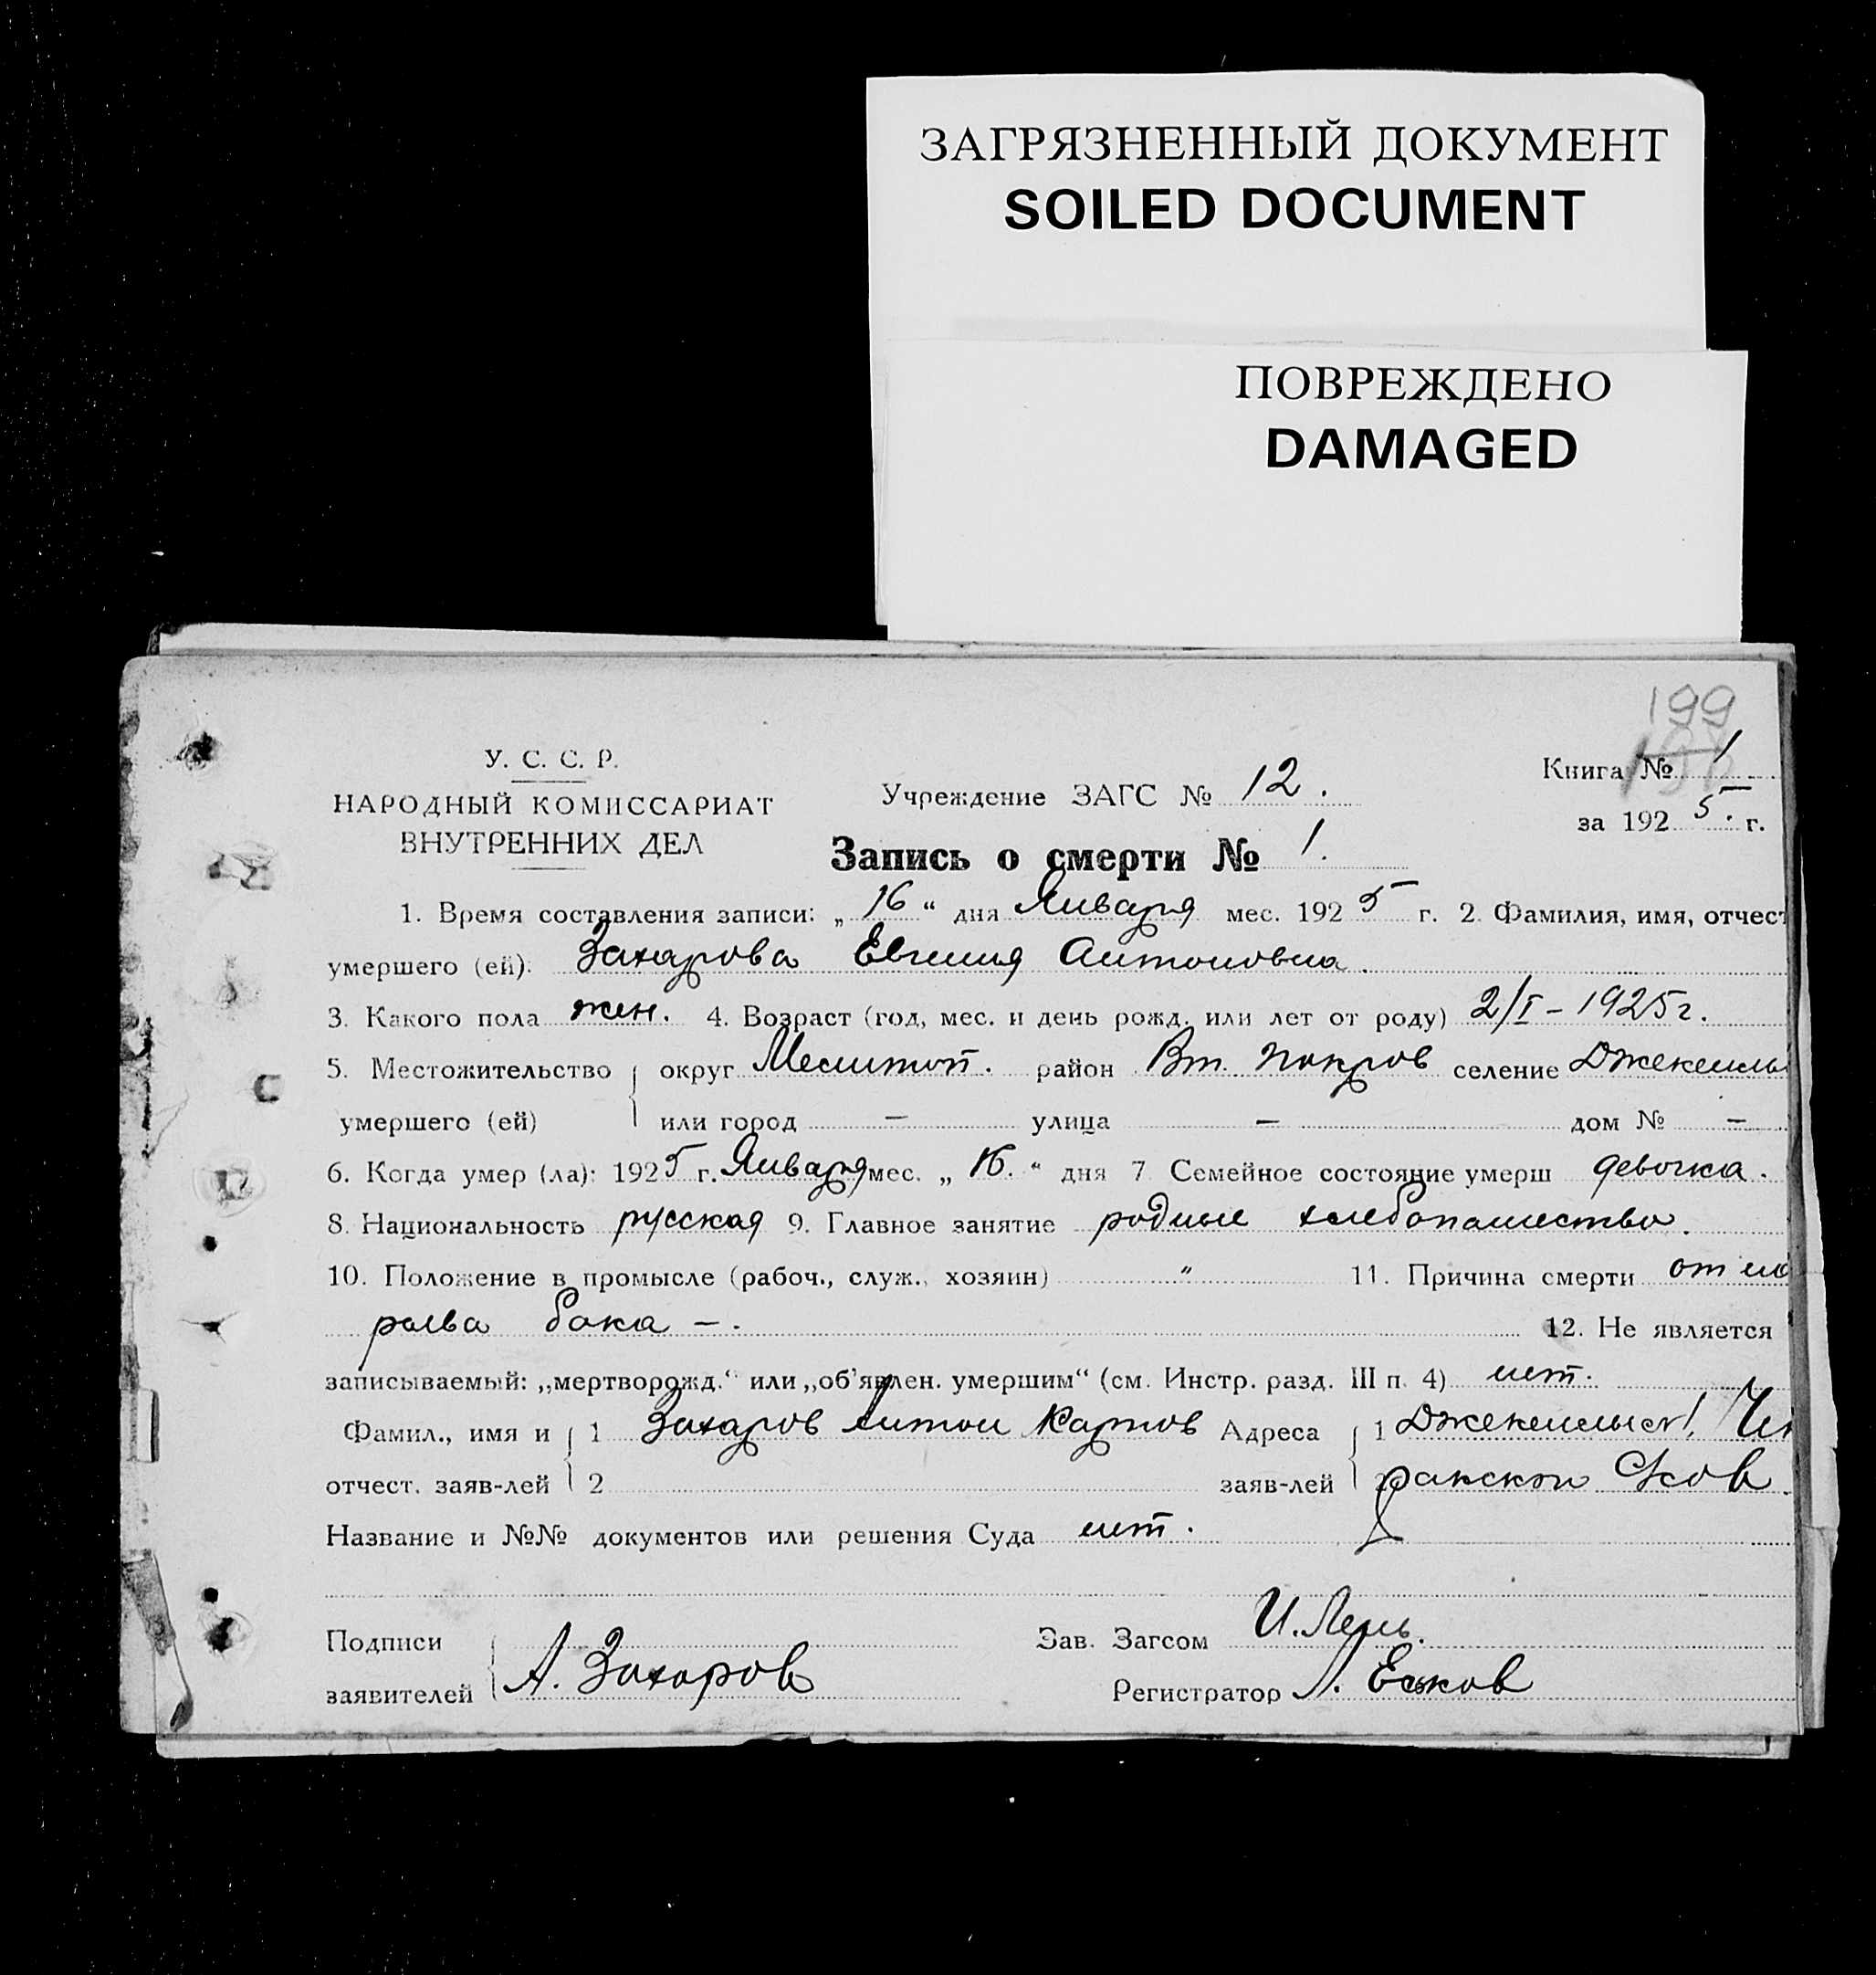 ЗАГРЯЗНЕННЫЙ ДОКУМЕНТ
SOILED DOCUMENT
ПОВРЕЖДЕНО
DAMAGED
199
У. С. С. Р.
НАРОДНЫЙ КОМИССАРИАТ
ВНУТРЕННИХ ДЕЛ
Учреждение ЗАГС № 12.
Книга № 1
за 1925. г.
Запись о смерти № 1.
1. Время составления записи: „16“ дня Января мес. 1925 г. 2. Фамилия, имя, отчест
умершего (ей): Захарова Евгения Антоновна.
3. Какого пола жен. 4. Возраст (год, мес. и день рожд. или лет от роду) 2/I – 1925 г.
5. Местожительство округ Мелитоп. район Вт. Покров селение
умершего (ей) или город — улица — дом № —
6. Когда умер (ла): 1925 г. Января мес. „16.“ дня 7 Семейное состояние умерш девочка.
8. Национальность русская 9. Главное занятие родные хлебопашество.
10. Положение в промысле (рабоч., служ., хозяин) " 11. Причина смерти от
бока –.
12. Не является
записываемый: „мертворожд.“ или „об'явлен. умершим“ (см. Инстр. разд. III п. 4) нет.
Фамил., имя и 1 Захаров Антон Карпов Адреса 1
отчест. заяв-лей 2 заяв-лей 2
Название и №№ документов или решения Суда нет.
Подписи Зав. Загсом И.
заявителей А. Захаров Регистратор Еськов